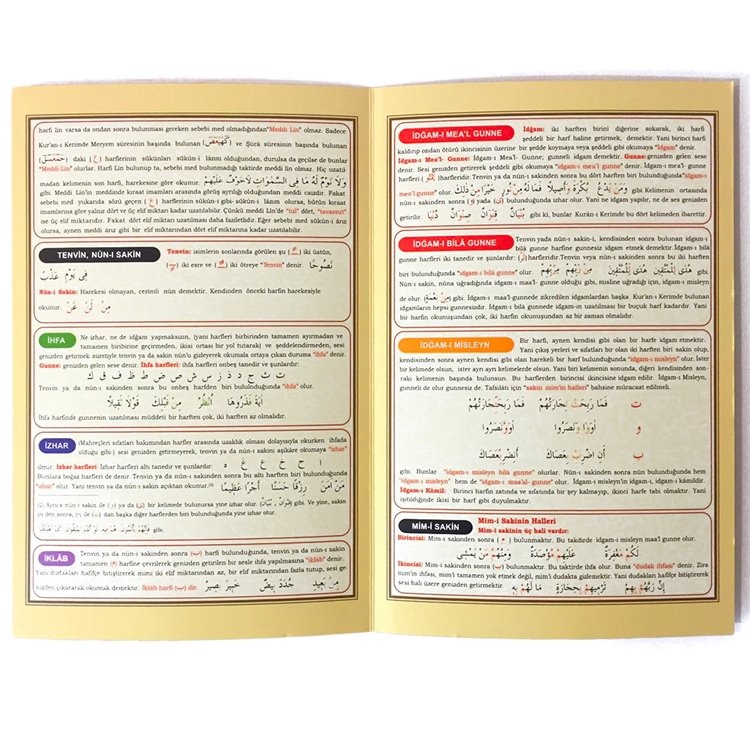 harfi lin varsa da ondan sonra bulunması gereken sebebi med olmadığından "Meddi Lin" olmaz. Sadece
Kur'an-ı Kerimde Meryem sûresinin başında bulunan (كهيعص) ve Şûrâ sûresinin başında bulunan
(حمعسق) daki (ع) harflerinin sükûnları sükûn-i lâzım olduğundan, durulsa da geçilse de bunlar
"Meddi Lin" olurlar. Harfi Lin bulunup ta, sebebi med bulunmadığı takdirde meddi lin olmaz. Hiç uzatıl-
madan kelimenin son harfi, harekesine göre okunur.
gibi. Meddi Lin'in meddinde kıraat imamları arasında görüş ayrılığı olduğundan meddi caizdir. Fakat
sebebi med yukarıda sözü geçen (ع) harflerinin sükûnu gibi sükûn-i lânım olursa, bütün kıraat
imamlarına göre yalnız dört ve üç elif miktarı kadar uzatılabilir. Çünkü Meddi Lin'de "tul" dört, "tavassut"
ise üç elif miktarıdır. Fakat dört elif miktarı uzatılması daha faziletlidir. Eğer sebebi med sükûn-i ârız
olursa, aynen meddi ârız gibi bir elif miktarından dört elif miktarına kadar uzatılabilir.
TENVİN, NÛN-I SAKİN
Tenvin: isimlerin sonlarında görülen şu (ـً) iki üstün,
(ـٍ) iki esre ve (ـٌ) iki ötreye "Tenvin" denir. نَصُوحًا
فِي يَوْمٍ عَذَابٌ
Nûn-i Sakin: Harekesi olmayan, cezimli nûn demektir. Kendinden önceki harfin harekesiyle
okunur. مِنْ لَنْ عَنْ
İHFA
Ne izhar, ne de idğam yapmaksızın, (yani harfleri birbirinden tamamen ayırmadan ve
tamamen birbirine geçirmeden, ikisi ortası bir yol tutarak) ve şeddelendirmeden, sesi
genizden getirmek suretiyle tenvin ya da sakin nûn'u gizleyerek okumala ortaya çıkan duruma "ihfa" denir.
Gunne: genizden gelen sese denir. İhfa harfleri: ihfa harfleri onbeş tanedir ve şunlardır:
ت ث ج د ذ ز س ش ص ض ط ظ ف ق ك
Tenvin ya da nûn-ı sakinden sonra bu onbeş harften biri bulunduğunda "ihfa" olur.
اٰيَةً فَذَرُوهَا اُنْظُرْ مِنْ قَبْلِكَ قَوْلًا ثَقِيلًا
İhfa harfinde gunnenin uzatılması müddeti bir harften çok, iki harften az olmalıdır.
İZHAR
(Mahreçleri sıfatları bakımından harfler arasında uzaklık olması dolayısıyla okurken ihfada
olduğu gibi-) sesi genizden getirmeyerek, tenvin ya da nûn-ı sakini açıktan okumaya "izhar"
denir. İzhar harfleri İzhar harfleri altı tanedir ve şunlardır: ا ح خ ع غ ه
Bunlara boğaz harfleri de denir. Tenvin ya da nûn-ı sakinden sonra bu altı harften biri bulunduğunda
"izhar" olur. Yani tenvin ya da nûn-ı sakin açıktan okunur.(2) مَنْ اٰمَنَ رِزْقًا حَسَنًا اَجْرًا عَظِيمًا
(2) Ayrıca nûn-ı sakin ile (و) ya da (ى) bir kelimede bulunursa yine izhar olur. (قِنْوَانٌ, بُنْيَانٌ) gibi. Ve yine, sakin
den sonra, (م) ile (ب) dan başka diğer harflerden biri bulunduğunda yine izhar olur.
gibi.
İKLÂB
Tenvin ya da nûn-ı sakinden sonra (ب) harfi bulunduğunda, tenvin ya da nûn-ı sakin
tamamen (م) harfine çevrilerek genizden getirilen bir sesle ihfa yapılmasına "iklâb" denir.
Yani dudakları hafifçe bitiştirerek mimi iki elif miktarından az, bir elif miktarından fazla tutup, sesi ge-
nizden çıkararak okumak demektir. İklâb harfi (ب) dir. مِنْ بَعِيدٍ جُدَدٌ بِيضٌ خَبِيرٌ بَصِيرٌ
İDĞAM-I MEA'L GUNNE
İdğam: iki harften birini diğerine sokarak, iki harfi
şeddeli bir harf haline getirmek, demektir. Yani birinci harfi
kaldırıp ondan ötürü ikincisinin üzerine bir şedde koymaya veya şeddeli gibi okumaya "İdğam" denir.
İdgam-ı Mea'l- Gunne: İdgam-ı Mea'l Gunne; gunneli idgam demektir. Gunne: genizden gelen sese
denir. Sesi genizden getirerek şeddeli gibi okumaya "idgam-ı mea'l gunne" denir. İdgam-ı mea'l gunne
harfleri (يمنو) harfleridir. Tenvin ya da nûn-ı sakinden sonra bu dört harften biri bulunduğunda "idgam-ı
mea'l gunne" olur. وَمَنْ يَدْعُ بُكْرَةً وَاَصِيلًا فَمَا لَهُ مِنْ نُورٍ خَيْرًا مِنْ ذٰلِكَ gibi Kelimenin ortasında
nûn-ı sakinden sonra (و) ya da (ى) bulunduğunda izhar olur. Yani ne idgam yapılır, ne de ses genizden
getirilir. بُنْيَانٌ قِنْوَانٌ صِنْوَانٌ دُنْيَا gibi ki, bunlar Kurân-ı Kerimde bu dört kelimeden ibarettir.
İDĞAM-I BİLÂ GUNNE
Tenvin yada nûn-ı sakin, kendisinden sonra bulunan idgam-ı
bilâ gunne harfine gunnesiz idgam etmek demektir. İdgam-ı bilâ
gunne harfleri iki tanedir ve şunlardır: (لر) harfleridir. Tenvin ya da nûn-ı sakinden sonra bu iki harften
biri bulunduğunda "idgam-ı bilâ gunne" olur. مِنْ رَبِّهِمْ هُدًى لِلْمُتَّقِينَ
Nûn-ı sakin, nûna uğradığında idgam-ı maal'- gunne olduğu gibi, misline uğradığı için, idgam-ı misleyn
de olur. (مِنْ نِعْمَةٍ) gibi. İdgam-ı maa'l-gunnede zikredilen idgamlardan başka Kur'an-ı Kerimde bulunan
idgamların hepsi gunnesizdir. İdgam-ı maa'l gunnede gunnenin uzatılması bir buçuk harf kadardır. Yani
bir harfin okunuşundan çok, iki harfin okunuşundan az bir zamandır.
İDĞAM-I MİSLEYN
Bir harfi, aynen kendisi gibi olan bir harfe idgam etmektir.
Yani çıkış yerleri ve sıfatları bir olan iki harften biri sakin olup,
kendisinden sonra aynen kendisi gibi olan harekeli bir harf bulunduğunda "idgam-ı misleyn" olur, ister
bir kelimede olsun, ister ayrı ayrı kelimelerde olsun. Yani biri kelimenin sonunda, diğeri kendisinden son-
raki kelimenin başında bulunsun. Bu harflerden birincisi ikincisine idgam edilir. İdgam-ı misleyn, gunneli
de olur gunnesiz de. Tafsilâtı için "sakin mim'in halleri" bahsine müracaat edilmeli.
ت فَمَا رَبِحَتْ تِجَارَتُهُمْ فَمَا رَبِحَتِّجَارَتُهُمْ
و اٰوَوْا وَنَصَرُوا اٰوَوَّنَصَرُوا
ب اَنِ اضْرِبْ بِعَصَاكَ اَنِضْرِبِّعَصَاكَ
gibi. Bunlar "idgam-ı misleyn bilâ gunne" olurlar. Nûn-ı sakinden sonra nûn bulunduğunda hem
"idgam-ı misleyn" hem de "idgam-ı maa'al- gunne" olur. İdgam-ı misleyn'in idgam-ı, idgam-ı kâmildir.
İdgam-ı Kâmil: Birinci harfin zatında ve sıfatında bir şey kalmayıp, ikinci harfe tabi olmaktır. Yani
ismiğam edildiğinde birinciden bir eser kalmayışıdır.
MİM-İ SAKİN
Mim-i Sakinin Halleri
Mim-i sakinin üç hali vardır:
Birincisi: Mim-i sakinden sonra (م) bulunmaktır. Bu takdirde idgam-ı misleyn maa'l gunne olur.
لَكُمْ مَغْفِرَةٌ عَلَيْهِمْ مُؤْصَدَةٌ وَمِنْهُمْ مَنْ يَمْشِي
İkincisi: Mim-i sakinden sonra (ب) bulunmaktır. Bu taktirde ihfa olur. Buna "dudak ihfası" denir. Zira
mim'in ihfası, mim'i tamamen yok etmek değil, mim'i dudakta gizlemektir. Yani dudakları hafifçe bitiştirerek
sesi hali üzere genizden getirmektir. اِنَّ رَبَّهُمْ بِهِمْ تَرْمِيهِمْ بِحِجَارَةٍ مَا لَهُمْ بِهِ